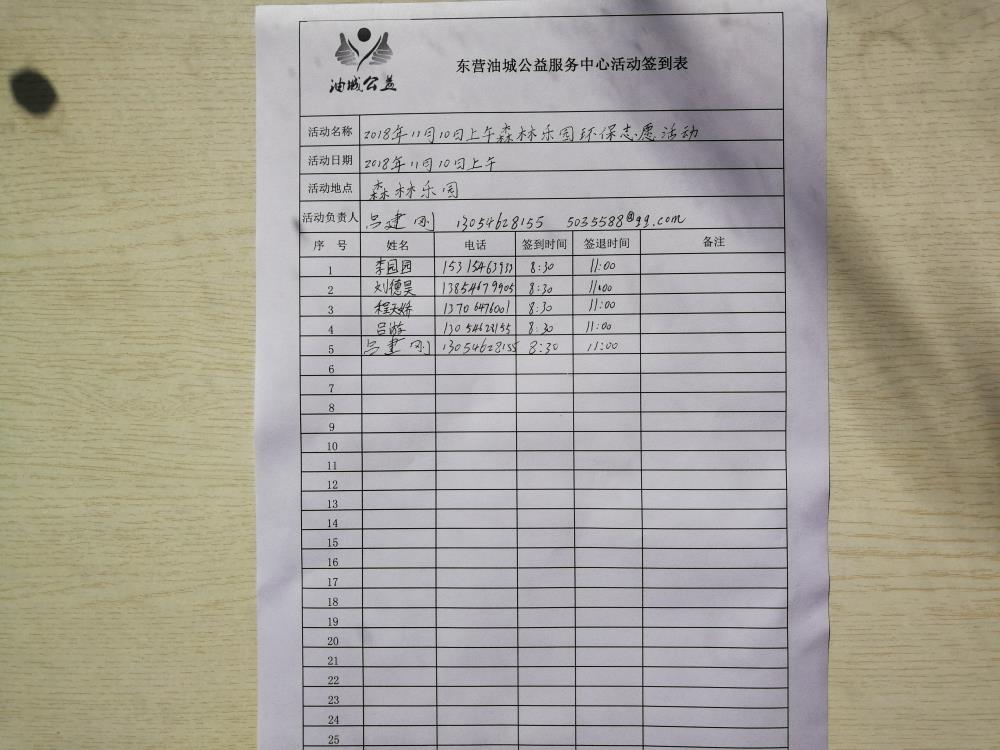 油城公益
东营油城公益服务中心活动签到表
活动名称 2018年11月10日上午森林乐园环保志愿活动
活动日期 2018年11月10日上午
活动地点 森林乐园
活动负责人 吕建刚 13054628155 5035588@qq.com
序 号 姓名 电话 签到时间 签退时间 备注
1 李园园 15315463933 8:30 11:00
2 刘德昊 13854679905 8:30 11:00
3 程天娇 13706476001 8:30 11:00
4 吕游 13054628155 8:30 11:00
5 吕建刚 13054628155 8:30 11:00
6
7
8
9
10
11
12
13
14
15
16
17
18
19
20
21
22
23
24
25